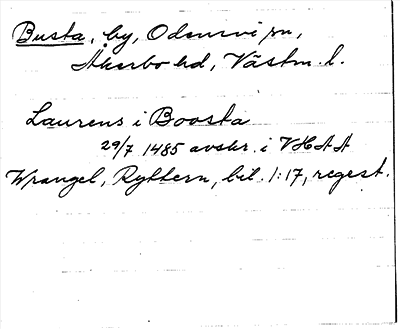 Busta, by, Odensvi sn,
Åkerbo hd, Västm. l.
Laurens i Boosta
29/7 1485 avskr. i VHAA
Wrangel, Ryttern, bil. 1:17, regest.